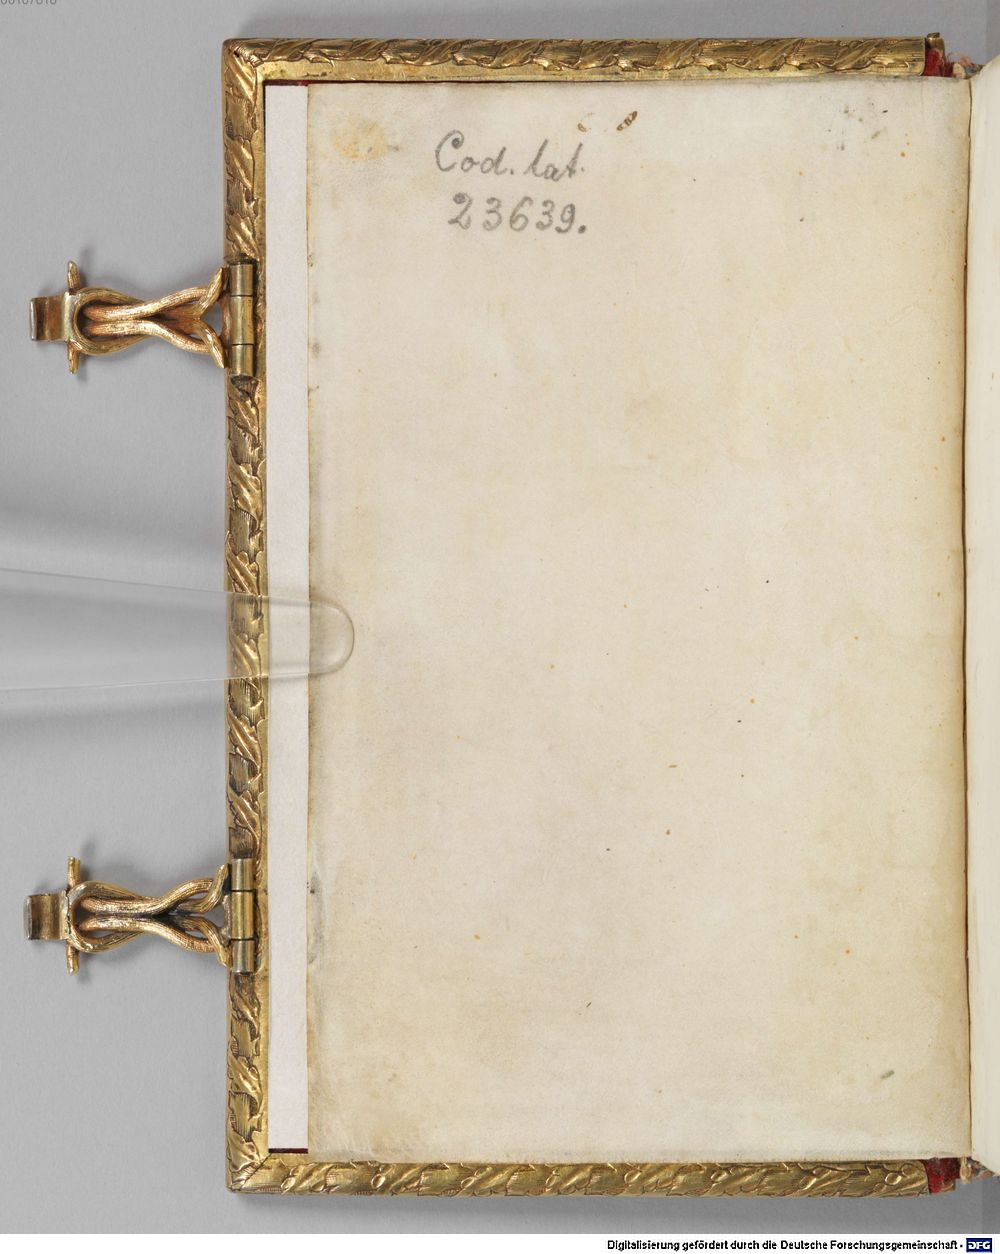 Cod. lat.
23639.
Digitalisierung gefördert durch die Deutsche Forschungsgemeinschaft - DFG